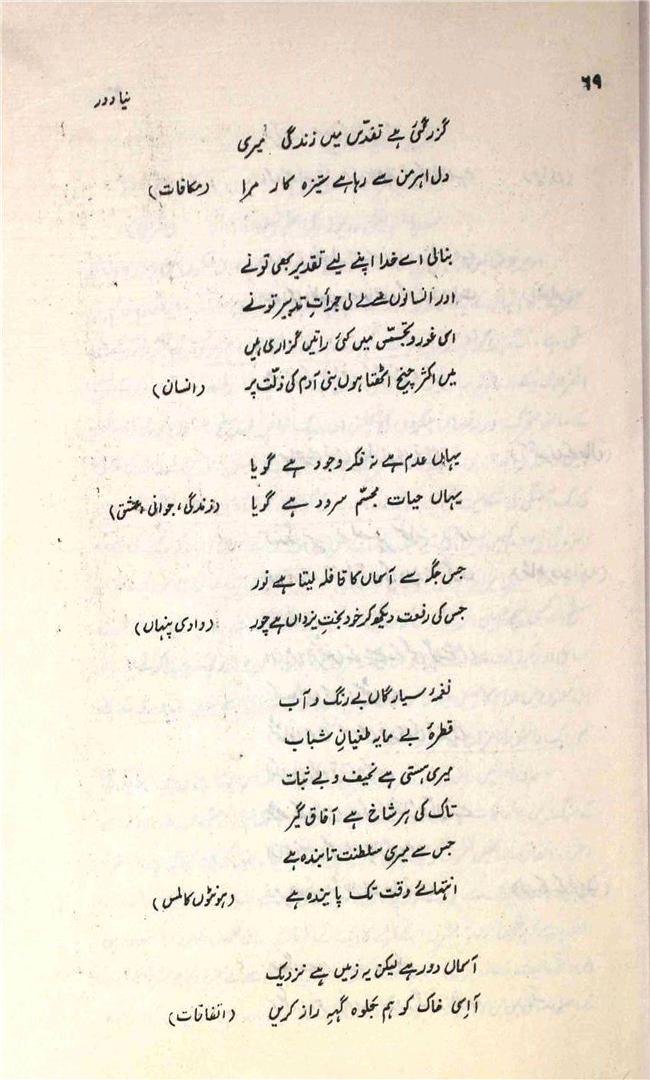 ۶۹
نیا دور
گزر گئی ہے تقدّس میں زندگی میری
دل اہرمن سے رہا ہے ستیزہ کار مرا (مکافات)
بنالی اے خدا اپنے لیے تقدیر بھی تونے
اور انسانوں سے لے لی جرأتِ تدبیر تونے
اسی غور و تجسّس میں کئی راتیں گزاری ہیں
میں اکثر چیخ اٹھتا ہوں بنی آدم کی ذلّت پر (انسان)
یہاں عدم ہے نہ فکرِ وجود ہے گویا
یہاں حیات مجسّم سرود ہے گویا (زندگی، جوانی، عشق)
جس جگہ سے آسماں کا قافلہ لیتا ہے نور
جس کی رفعت دیکھ کر خود ہمتِ یزداں ہے چور (وادیٔ پنہاں)
نغمۂ سیارگاں بے رنگ و آب
قطرۂ بے مایہ طغیانِ شباب
میری ہستی ہے نحیف و بے ثبات
تاک کی ہر شاخ ہے آفاق گیر
جس سے میری سلطنت تابندہ ہے
انتہائے وقت تک پایندہ ہے (ہونٹوں کا لمس)
آسماں دور ہے لیکن یہ زمیں ہے نزدیک
آ اِسی خاک کو ہم جلوہ گہِ راز کریں (اتفاقات)